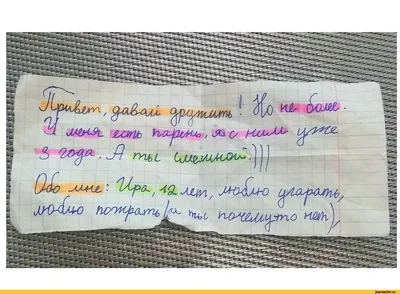 Привет, давай дружить! Но не более.
У меня есть парень, я с ним уже
3 года. А ты смешной.))))
Обо мне: Ира, 12 лет, люблю угарать,
люблю пожрать (а ты почему-то нет),
joyreactor.cc